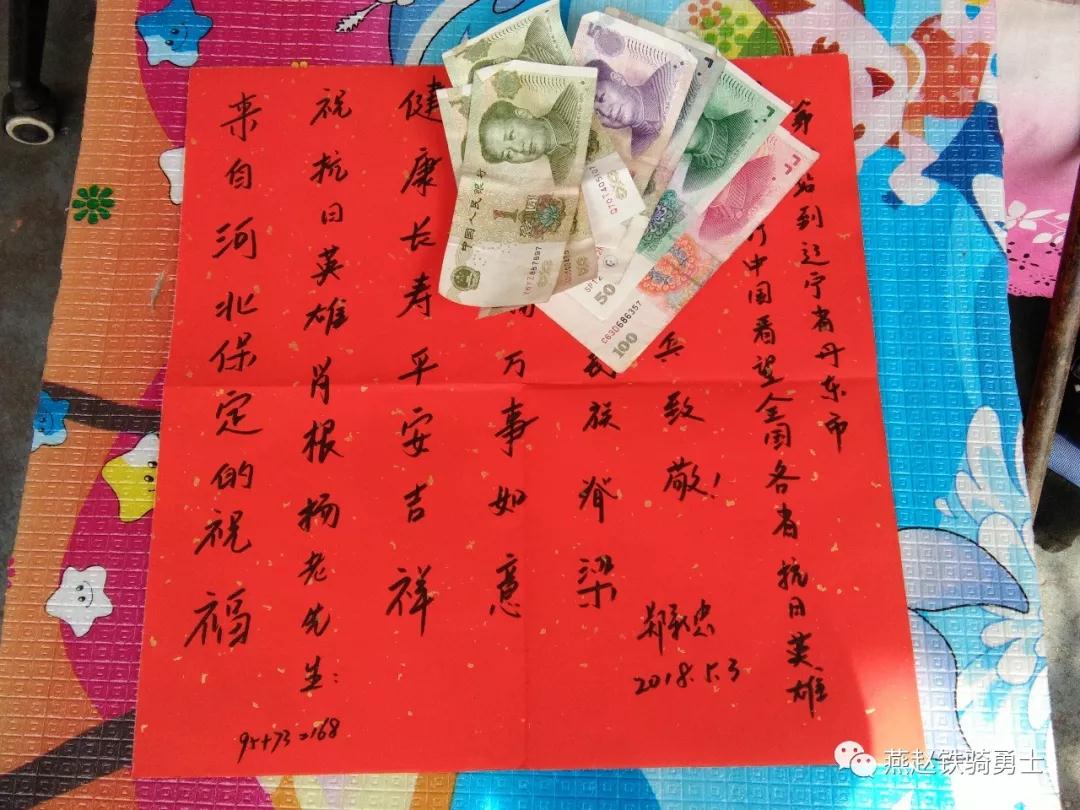 来自河北保定的祝福
祝抗日英雄肖根杨老先生:
健康长寿平安吉祥
万事如意
民族脊梁
兵致敬!
行中国看望全国各省抗日英雄
站到辽宁省丹东市
2018.5.3
95+73=168
中国人民银行
1
5
50
C63D686357
100
燕赵铁骑勇士